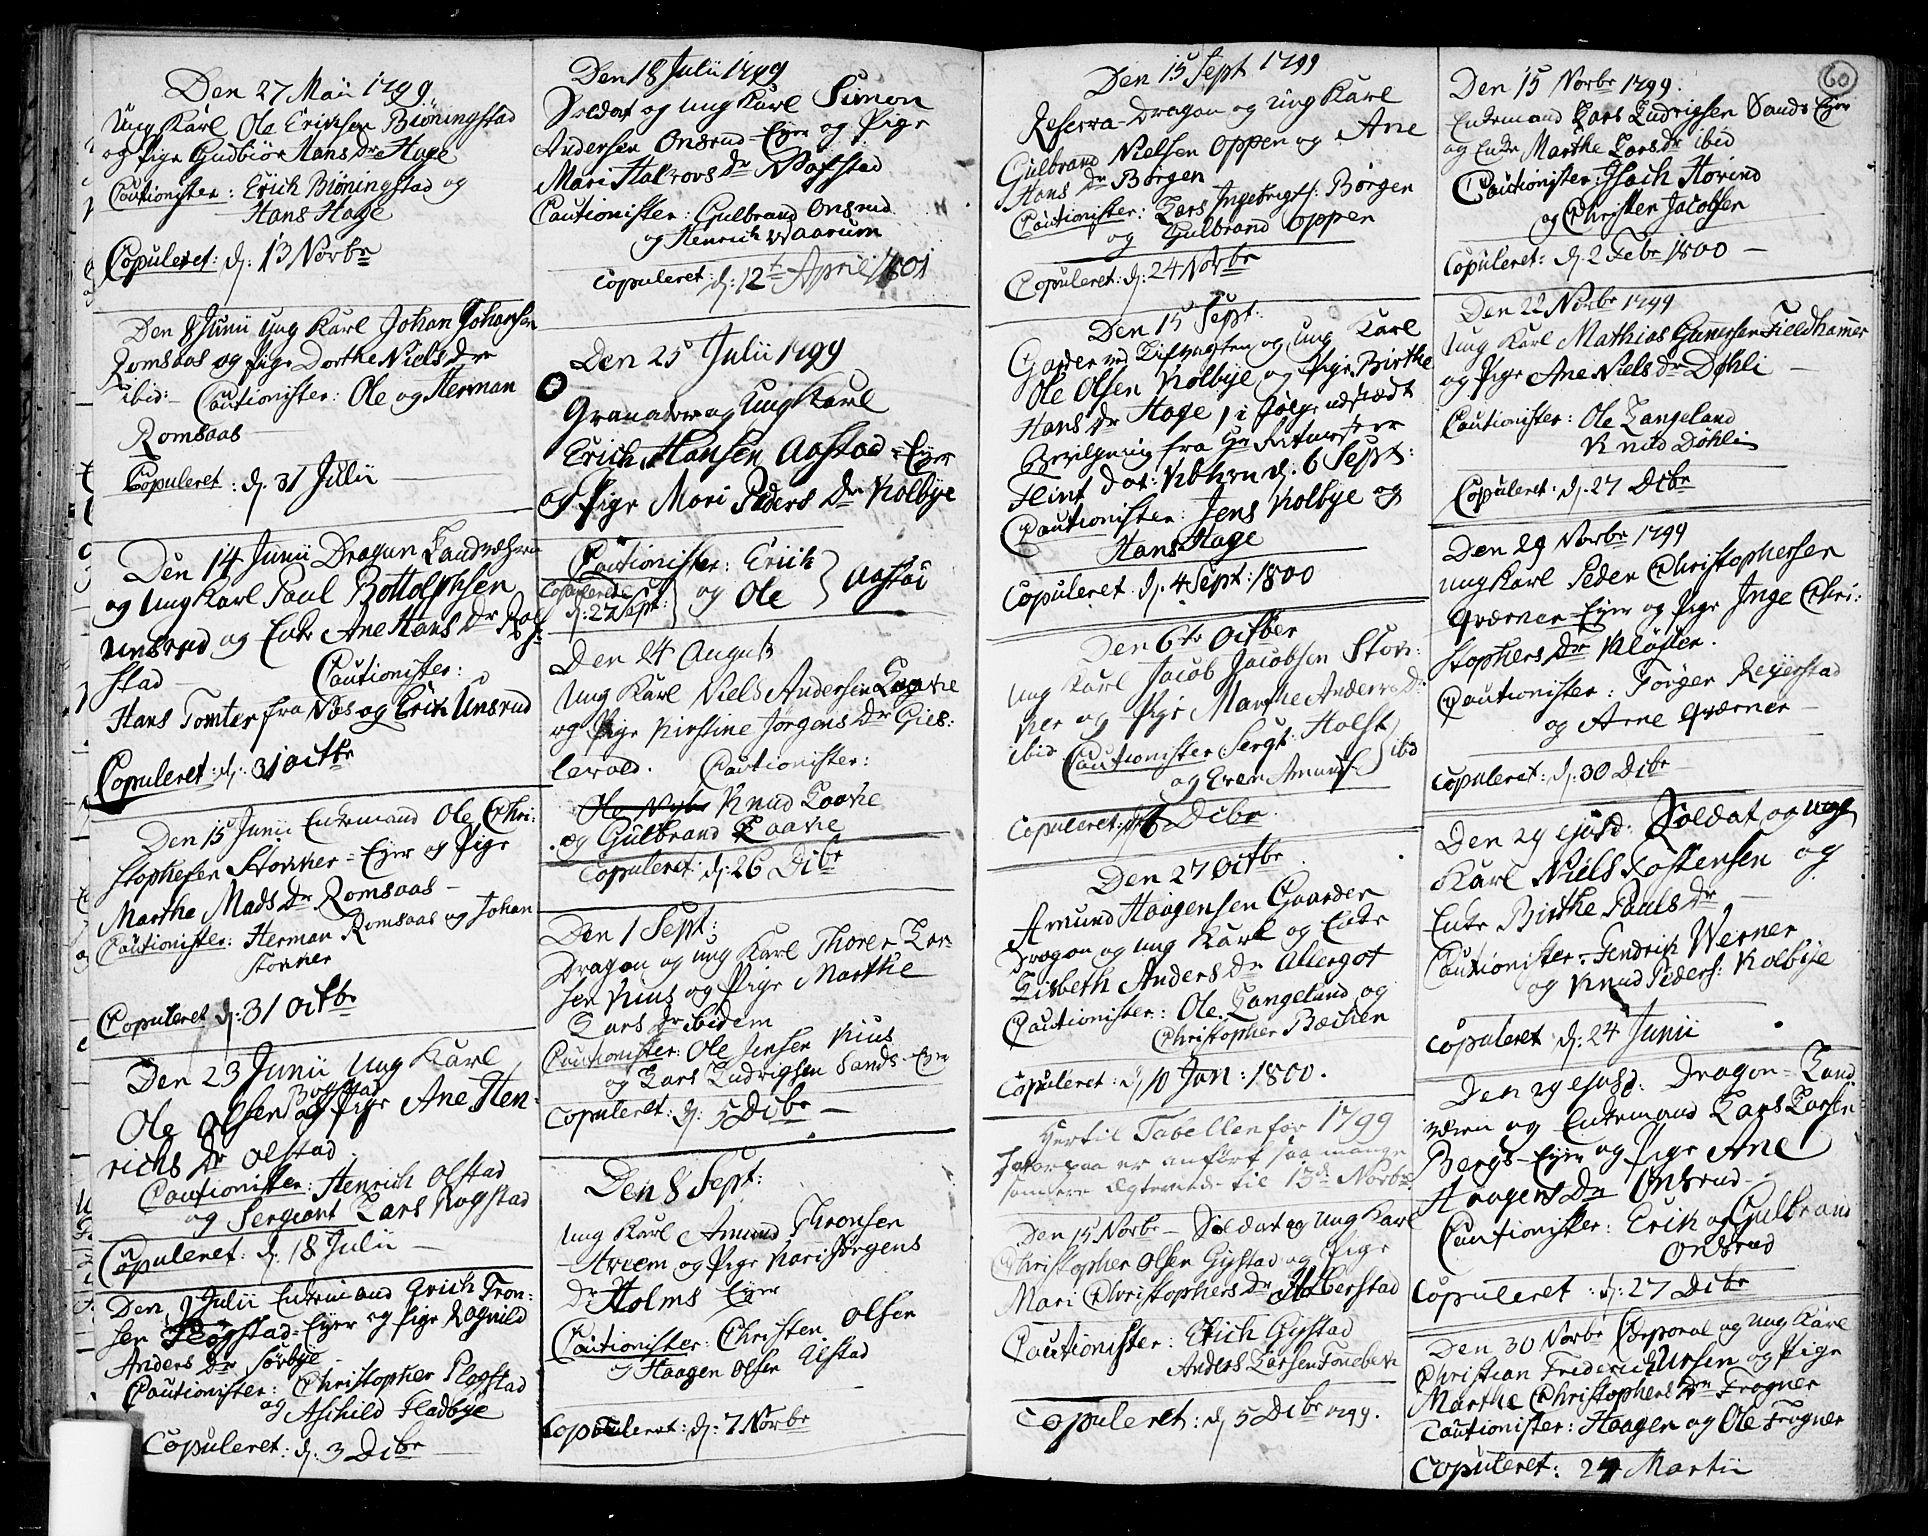 Den 27 Mai 1799.
Ung Karl Ole Eriksen Biöningstad
og Pige Gudbiör Hans Dr Hage
Cautionister: Erich Biöningstad og
Hans Hage
Copuleret: d: 13 Norbr
Den 8 Junii Ung Karl Johan Johansen
Romsaas og Pige Dorthe Niels Dr
ibid: Cautionister: Ole og Herman
Romsaas
Copuleret: d: 31 Julii
Den 14 Junii Dragun Landværn
og Ung Karl Paul Bottolphsen
Unsrud og Enke Ane Hans Dr
stad Cautionister:
Hans Tomter fra Næs og Erik Unsrud
Copuleret: d: 31 Octbr
Den 15 Junii Enkemand Ole Chri:
stophersen Stonner-Eyer og Pige
Marthe Mads Dr Romsaas
Cautionister: Herman Romsaas og Johan
Stonner
Copuleret d: 31 Octbr
Den 23 Junii Ung Karl
Rogstad
Ole Olsen og Pige Ane Hen-
richs Dr Olstad
Cautionister: Henrich Olstad
og Sergiant Lars Rogstad
Copuleret: d: 18 Julii
Den Julii Enkemand Erich Tron-
sen Plogstad-Eyer og Pige Ragnild
Anders Dr Sørbye
Cautionister: Christopher Plogstad
og Aschild Fladbye
Copuleret: d: 3 Dcbr
Den 18 Julii 1799
Soldat og Ung Karl Simon
Andersen Onsrud-Eyer og Pige
Mari Halvors Dr
Cautionister: Gulbrand Onsrud
og Henrich Waarum
Copuleret: d: 12t April 1801
Den 25 Julii 1799
Granader og Ung Karl
Erich Hansen Aastad-Eyer
og Pige Mari Peders Dr Kolbye
Cautionister: Erich
Copulerede og Ole } Aastad
d: 27 Sept:
Den 24 August
Ung Karl Niels Andersen Laake
og Pige Kirstine Jørgens Dr Gies:
levold. Cautionister:
Knud Laake
og Gulbrand Laake
Copuleret: d: 26 Dcbr
Den 1 Sept:
Dragon og Ung Karl Thorer Lar-
sen Kius og Pige Marthe
Lars Dr ibidem
Cautionister: Ole Jensen Kius
og Lars Ludvigsen Sands-Eyer
Copuleret: d: 5 Dcbr
Den 8 Sept:
Ung Karl Amund Thronsen
Hvem og Pige Kari Jørgens
Dr Holms Eyer
Cautionister: Christen Olsen
Haagen Olsen Ulstad
Copuleret: d: 7 Norbr
Den 15 Sept 1799
Reserva-Dragon og Ung Karl
Gulbrand Nielsen Oppen og Ane
Hans Dr Børgen
Cautionister: Lars Ingebrigts: Børgen
og Gulbrand Oppen
Copuleret: d: 24 Norbr
Den 15 Sept:
Garder ved Livvagten og Ung Karl
Ole Olsen Kolbye og Pige Birthe
Hans Dr Hage, i følge udstædt
Bevilgning fra Hr
Flint dat: Kbhvn d: 6 Sept:
Cautionister: Jens Kolbye og
Hans Hage
Copuleret d: 4 Sept: 1800
Den 6te Octber
Ung Karl Jacob Jacobsen Ston-
ner og Pige Marthe Anders Dr
ibid Cautionister Sergt: Holst
og Even Amunds } ibd
Copuleret: d: 6 Dcbr.
Den 27 Octbr
Amund Haagensen Gaarder
Dragon og Ung Karl og Enke
Lisbeth Anders Dr Allergot
Cautionister: Ole Langeland og
Christopher Bæchen
Copuleret: d 10 Jan: 1800.
Hertil Tabellen for 1799
hvorpaa er anført saa mange
som ere Ægteviede til 15de Norbr
Den 15 Norbr Soldat og Ung Karl
Christopher Olsen Gystad og Pige
Mari Christophers Dr Holberstad
Cautionister: Erich Gystad
Anders Larsen Fonebek
Copuleret: d 5 Dcbr 1799.
60
Den 15 Norbr 1799.
Enkemand Lars Ludvigsen Sands Eyer
og Enke Marthe Lars Dr ibid
Cautionister: Isach Hovind
og Christen Jacobsen
Copuleret: d: 2 Febr 1800
Den 22 Norbr 1799
Ung Karl Mathias Gunersen Fieldhamer
og Pige Ane Niels Dr Døhli
Cautionister: Ole Langeland
Knud Døhli
Copuleret: d: 27 Dcbr
Den 29 Norbr 1799
Ung Karl Peder Christophersen
Qværner-Eyer og Pige Inge Chri:
stophers Dr Kløfter.
Cautionister: Jørger Reyerstad
og Arne Qværner
Copuleret: d: 30 Dcbr
Den 29 ejusd: Soldat og Ung
Karl Niels Tostensen og
Enke Birthe Pauls Dr
Cautionister: Fendrich Werner
og Knud Peders: Kolbye
Copuleret d: 24 Junii
Den 29 ejusd: Dragon-Land
værn og Enkemand Lars Larsen
Bergs-Eyer og Pige Ane
Haagens Dr Onsrud
Cautionister: Erik og Gulbrand
Onsrud
Copuleret: d: 27 Dcbr
Den 30 Norbr Corporal og Ung Karl
Christian Friderich Ursen og Pige
Marthe Christophers Dr Frogner
Cautionister: Haagen og Ole Frogner
Copuleret: 24 Martii